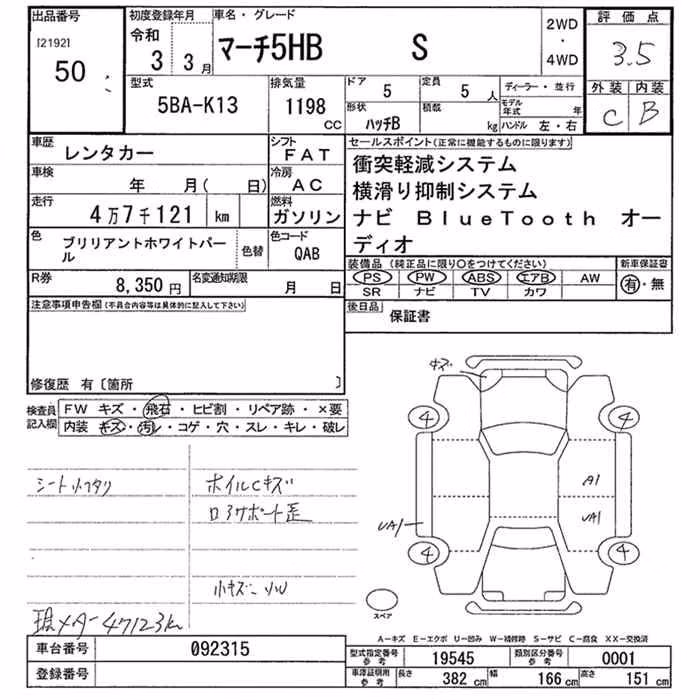 出品番号 初度登録年月 車名・グレード 2WD・4WD 評価点
[2192]
50
令和
3 3月
マーチ5HB S
3.5
外装 内装
C B
型式 排気量 ドア 定員 ディーラー・並行
5BA-K13 1198 CC 5 5人
形状 積載 モデル年式 年
ハッチB kg ハンドル 左・右
車歴 レンタカー シフト FAT
車検 年 月( 日) 冷房 AC
走行 4万7千121 km 燃料 ガソリン
色 ブリリアントホワイトパール 色替 色コード QAB
R券 8,350円 名変通知期限 月 日
セールスポイント(正常に機能するものに限ります)
衝突軽減システム
横滑り抑制システム
ナビ BlueTooth オー
ディオ
装備品 (純正品に限り○をつけてください) 新車保証書
PS PW ABS エアB AW 有・無
SR ナビ TV カワ
後日品 保証書
注意事項申告欄(不具合内容等は具体的に記入して下さい)
修復歴 有〔箇所 〕
検査員記入欄
FW キズ・飛石・ヒビ割・リペア跡・×要
内装 キズ・汚レ・コゲ・穴・スレ・キレ・破レ
ホイルCキズ
ロアサポート歪
小キズ 小W
現メーター47123km
キズ
4 4
A1
UA1 UA1
4 4
スペア
A-キズ E-エクボ U-凹み W-補修跡 S-サビ C-腐食 XX-交換済
車台番号 092315
登録番号
型式指定番号 参考 19545 類別区分番号 参考 0001
車庫証明用 参考 長さ 382 cm 幅 166 cm 高さ 151 cm